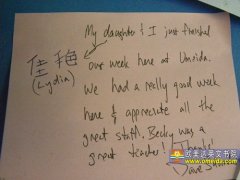 My daughter & I just finished
佳艳
(Lydia)
our week here at Omeida.
We had a really good week
here & appreciate all the
great staff. Becky was a
great teacher! Thanks
www.omeida.com